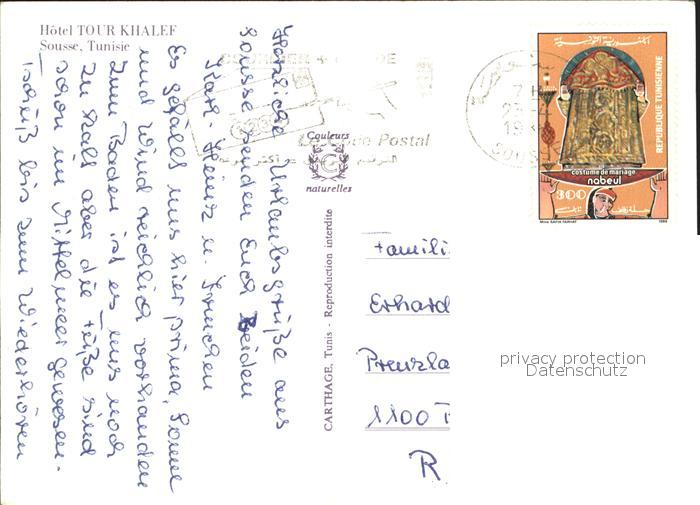 Hôtel TOUR KHALEF
Sousse, Tunisie
Herzliche Urlaubsgrüße aus
Sousse senden Euch Beiden
Karl Heinz u. Frauchen
Es gefällt uns hier prima, Sonne
und Wind reichlich vorhanden
zum Baden ist es uns noch
zu kalt aber die Füße sind
schon im Mittelmeer gewesen.
Tschüß bis zum Wiederhören
Couleurs
naturelles
CARTHAGE, Tunis - Reproduction interdite
Postal
SOUSS
الجمهورية التونسية
REPUBLIQUE TUNISIENNE
costume de mariage
nabeul
300
1986
Famili
Erhard
Prenzla
1100
R
privacy protection
Datenschutz